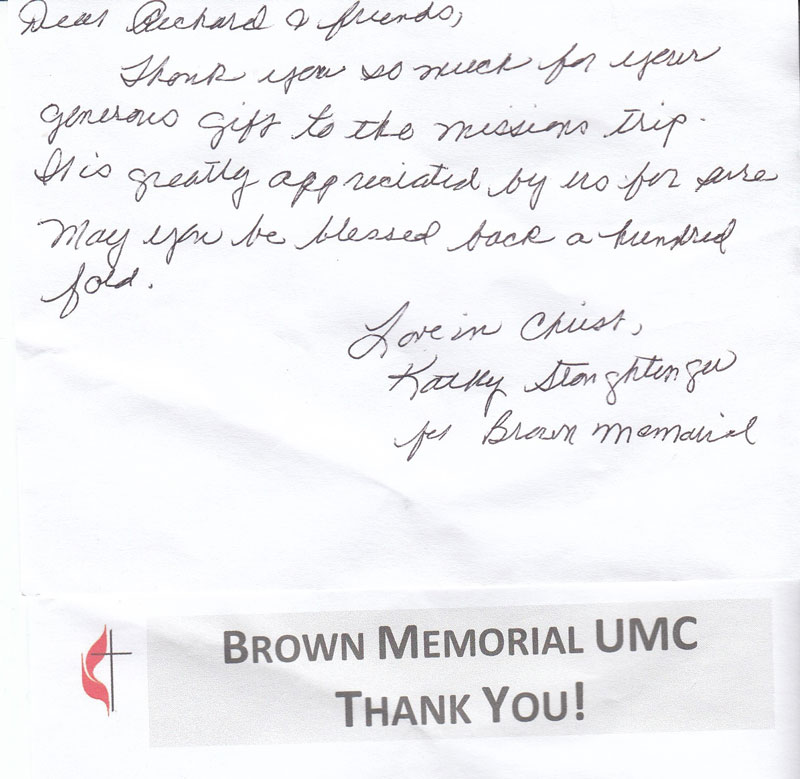 Dear Richard & friends,
Thank you so much for your
generous gift to the missions trip.
It is greatly appreciated by us for sure
May you be blessed back a hundred
fold.
Love in Christ,
Kathy
for Brown Memorial
BROWN MEMORIAL UMC
THANK YOU!